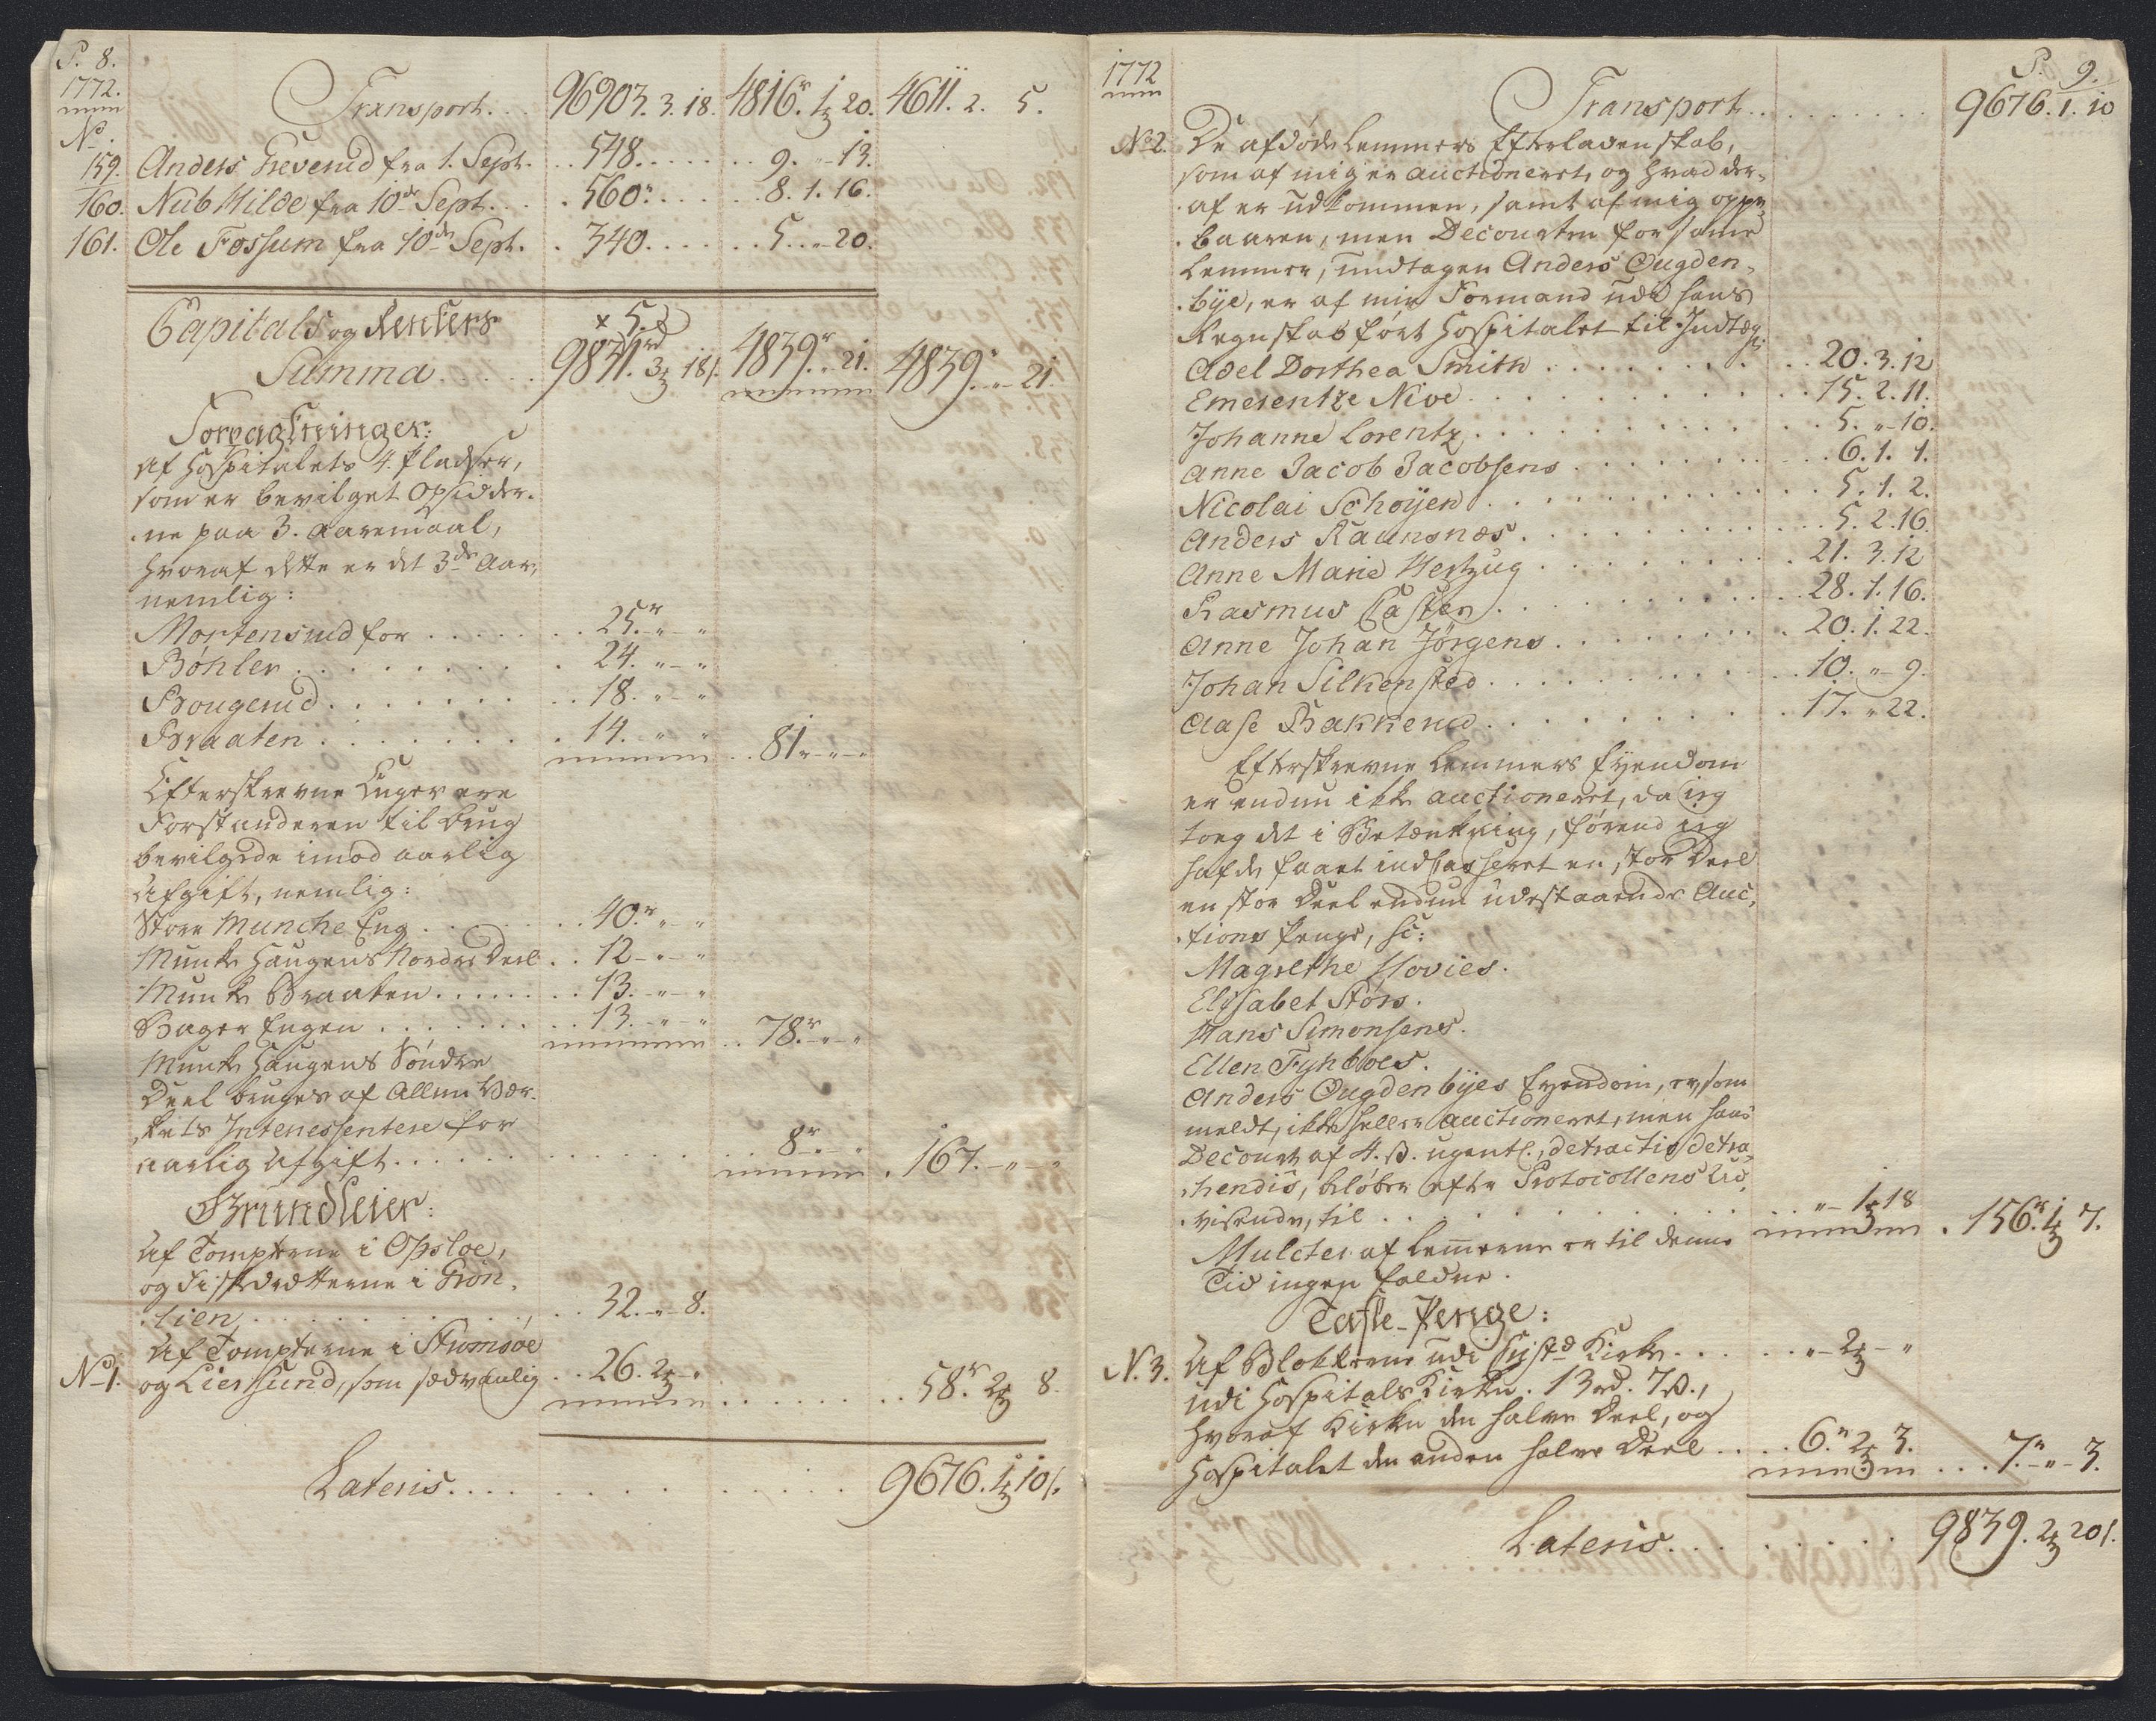 P. 8.
1772.
Transport... 96903. 3. 18. 4816r. 1. 20. 4611. 2. 5.
No.
159. Anders Greverud fra 1. Sept. .. 548. .... 9. „ 13.
160. Nub Hilde fra 10de Sept. .. 560. .... 8. 1. 16.
161. Ole Fossum fra 10de Sept. . 340. .... 5. „ 20.
Capitals og Renters x 5. x
Summa .... 98351rd. 3. 18/. 4839r. „ 21. 4839. „ 21.
Forpagtninger:
Af Hospitalets 4. Pladser,
som er bevilget Opsidder-
ne paa 3. Aaremaal,
hvoraf dette er det 3de Aar,
nemlig:
Mortensrud for .... 25r. „ „
Bøhler .... 24. „ „
Bougerud .... 18. „ „
Braaten .... 14. „ „ .. 81. „ „
Efterskrevne Enger ere
Forstanderen til Brug
bevilgede imod aarlig
Afgift, nemlig:
Store Munche Eng .... 40r. „ „
Munke Haugens Nordre Deel .. 12 „ „
Munke Braaten .... 13. „ „
Bager Engen .... 13. „ „ .. 78r. „ „
Munke Haugens Søndre
Deel bruges af Allun Vær-
kets Interessentere for
aarlig Afgift .... 8r. „ „ . 167. „ „
Grundleier:
Af Tompterne i Opsloe,
og Fiskedrætterne i Grøn-
lien .... 32. „ 8.
Af Tompterne i Strømsøe
No 1. og Liersund, som sædvanlig .. 26. 2. „ .... 58r. 2. 8.
Lateris .... 9676. 1. 10/.
1772 P. 9.
Transport .... 9676. 1. 10
No 2. De afdøde Lemmers Efterladenskab,
som af mig er auctioneret, og hvad der-
af er udkommen, samt af mig oppe-
baaren, men Decourten for samme
Lemmer, undtagen Anders Ougden-
bye, er af min Formand udi hans
Regnskab ført Hospitalet til Indtægt:
Adel Dorthea Smith .... 20. 3. 12
Emerentze Nive .... 15. 2. 11.
Johanne Lorentz .... 5. „ 10.
Anne Jacob Jacobsens .... 6. 1. 1.
Nicolai Schøyen .... 5. 1. 2.
Anders Raunsnæs .... 5. 2. 16.
Anne Marie Hertzug .... 21. 3. 12
Rasmus Casten .... 28. 1. 16.
Anne Johan Jørgens .... 20. 1. 22.
Johan Silkensted .... 10. „ 9.
Aase Bakkerud .... 17. „ 22.
Efterskrevne Lemmers Eyendom
er endnu ikke auctioneret, da jeg
tog det i Betænkning, førend jeg
hafde faaet indcasseret en stor Deel
en stor Deel endnu udestaaende Auc-
tions Penge, sc:
Magrethe Hovies.
Elisabet Størs.
Hans Simonsens.
Ellen Fyhboes.
Anders Ougdenbyes Eyendom, er, som
meldt, ikke heller auctioneret, men hans
Decourt af 4. ß. ugentl., detractis detra-
hendis, beløber efter Protocollens Ud-
visende, til .... „ 1. 18 . 156r. 1. 7.
Mulcter af Lemmerne er til denne
Tid ingen faldne.
Tafle-Penge:
N. 3. Af Blokkene udi Christ. Kirke .... „ 2. „
udi Hospitals Kirken. 13rd. 7ß.,
hvoraf Kirken den halve Deel, og
Hospitalet den anden halve Deel .... 6. 2. 3. ... 7. „ 3.
Lateris .... 9839. 2. 20/.